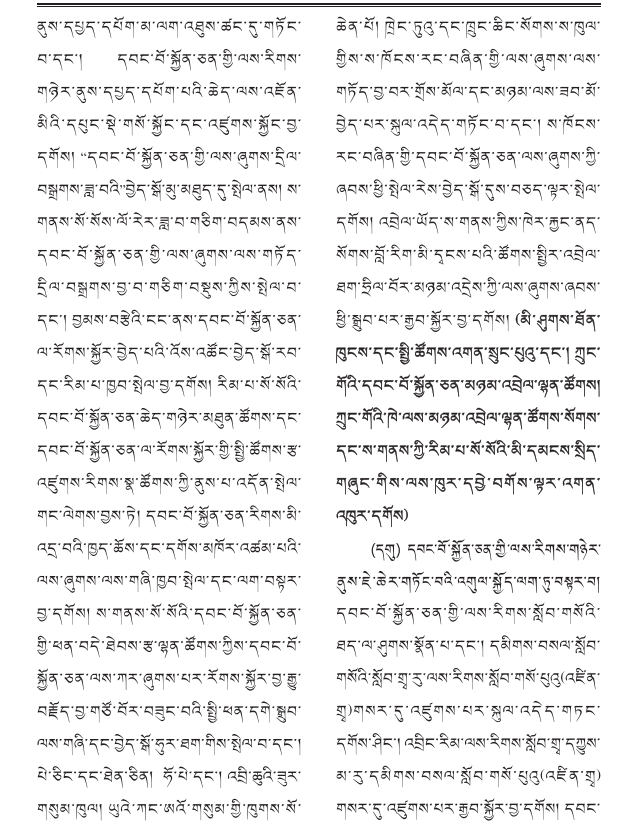 ནུས་དཔྱད་དཔོག་མ་ལག་འཐུས་ཚང་དུ་གཏོང་
བ་དང་། དབང་པོ་སྐྱོན་ཅན་གྱི་ལས་རིགས་
གཉེར་ནུས་དཔྱད་དཔོག་པའི་ཆེད་ལས་འཛོན་
མིའི་དཔུང་སྡེ་གསོ་སྐྱོང་དང་འཛུགས་སྐྱོང་བྱ་
དགོས། “དབང་པོ་སྐྱོན་ཅན་གྱི་ལས་ཞུགས་དྲིལ་
བསྒྲགས་ཟླ་བའི”བྱེད་སྒོ་མུ་མཐུད་དུ་སྤེལ་ནས། ས་
གནས་སོ་སོས་ལོ་རེར་ཟླ་བ་གཅིག་བདམས་ནས་
དབང་པོ་སྐྱོན་ཅན་གྱི་ལས་ཞུགས་ལས་གཏོད་
དྲིལ་བསྒྲགས་བྱ་བ་གཅིག་བསྡུས་ཀྱིས་སྤེལ་བ་
དང་། བྱམས་བརྩེའི་ངང་ནས་དབང་པོ་སྐྱོན་ཅན་
ལ་རོགས་སྐྱོར་བྱེད་པའི་འོས་འཚོང་བྱེད་སྒོ་རབ་
དང་རིམ་པ་ཁྱབ་སྤེལ་བྱ་དགོས། རིམ་པ་སོ་སོའི་
དབང་པོ་སྐྱོན་ཅན་ཆེད་གཉེར་མཐུན་ཚོགས་དང་
དབང་པོ་སྐྱོན་ཅན་ལ་རོགས་སྐྱོར་གྱི་སྤྱི་ཚོགས་རྩ་
འཛུགས་རིགས་སྣ་ཚོགས་ཀྱི་ནུས་པ་འདོན་སྤེལ་
གང་ལེགས་བྱས་ཏེ། དབང་པོ་སྐྱོན་ཅན་རིགས་མི་
འདྲ་བའི་ཁྱད་ཆོས་དང་དགོས་མཁོར་འཚམ་པའི་
ལས་ཞུགས་ལས་གཞི་ཁྱབ་སྤེལ་དང་ལག་བསྟར་
བྱ་དགོས། ས་གནས་སོ་སོའི་དབང་པོ་སྐྱོན་ཅན་
གྱི་ཕན་བདེ་ཐེབས་རྩ་ལྷན་ཚོགས་ཀྱིས་དབང་པོ་
སྐྱོན་ཅན་ལས་ཀར་ཞུགས་པར་རོགས་སྐྱོར་བྱ་རྒྱུ་
བརྗོད་བྱ་གཙོ་བོར་བཟུང་བའི་སྤྱི་ཕན་དགེ་སྒྲུབ་
ལས་གཞི་དང་བྱེད་སྒོ་ཧུར་ཐག་གིས་སྤེལ་བ་དང་།
པེ་ཅིང་དང་ཐེན་ཅིན། ཧོ་པེ་དང་། འབྲི་ཆུའི་ཟུར་
གསུམ་ཁུལ། ཡུའེ་ཀང་ཨའོ་གསུམ་གྱི་ཁུགས་སོ་
ཆེན་པོ། ཁྲེང་ཏུའུ་དང་ཁྲུང་ཆིང་སོགས་ས་ཁུལ་
གྱིས་ས་ཁོངས་རང་བཞིན་གྱི་ལས་ཞུགས་ལས་
གཏོད་བྱ་བར་གྲོས་མོལ་དང་མཉམ་ལས་ཟབ་མོ་
བྱེད་པར་སྐུལ་འདེད་གཏོང་བ་དང་། ས་ཁོངས་
རང་བཞིན་གྱི་དབང་པོ་སྐྱོན་ཅན་ལས་ཞུགས་ཀྱི་
ཞབས་ཕྱི་སྤེལ་རེས་བྱེད་སྒོ་དུས་བཅད་ལྟར་སྤེལ་
དགོས། འབྲེལ་ཡོད་ས་གནས་ཀྱིས་ཁེར་རྐྱང་ནད་
སོགས་བློ་རིག་མི་དྭངས་པའི་ཚོགས་སྤྱིར་འབྲེལ་
ཐག་ཧྲིལ་པོར་མཉམ་འདྲེས་ཀྱི་ལས་ཞུགས་ཞབས་
ཕྱི་སྒྲུབ་པར་རྒྱབ་སྐྱོར་བྱ་དགོས། (མི་ཤུགས་ཐོན་
ཁུངས་དང་སྤྱི་ཚོགས་འགན་སྲུང་པུའུ་དང་། ཀྲུང་
གོའི་དབང་པོ་སྐྱོན་ཅན་མཉམ་འབྲེལ་ལྷན་ཚོགས།
ཀྲུང་གོའི་ཁེ་ལས་མཉམ་འབྲེལ་ལྷན་ཚོགས་སོགས་
དང་ས་གནས་ཀྱི་རིམ་པ་སོ་སོའི་མི་དམངས་སྲིད་
གཞུང་གིས་ལས་ཁུར་དབྱེ་བགོས་ལྟར་འགན་
འཁུར་དགོས)
(དགུ) དབང་པོ་སྐྱོན་ཅན་གྱི་ལས་རིགས་གཉེར་
ནུས་ཇེ་ཆེར་གཏོང་བའི་འགུལ་སྐྱོད་ལག་ཏུ་བསྟར་བ།
དབང་པོ་སྐྱོན་ཅན་གྱི་ལས་རིགས་སློབ་གསོའི་
ཐད་ལ་ཤུགས་སྣོན་པ་དང་། དམིགས་བསལ་སློབ་
གསོའི་སློབ་གྲྭ་རུ་ལས་རིགས་སློབ་གསོ་པུའུ(འཛིན་
གྲྭ)གསར་དུ་འཛུགས་པར་སྐུལ་འདེད་གཏང་
དགོས་ཤིང་། འབྲིང་རིམ་ལས་རིགས་སློབ་གྲྭ་དཀྱུས་
མ་རུ་དམིགས་བསལ་སློབ་གསོ་པུའུ(འཛིན་གྲྭ)
གསར་དུ་འཛུགས་པར་རྒྱབ་སྐྱོར་བྱ་དགོས། དབང་